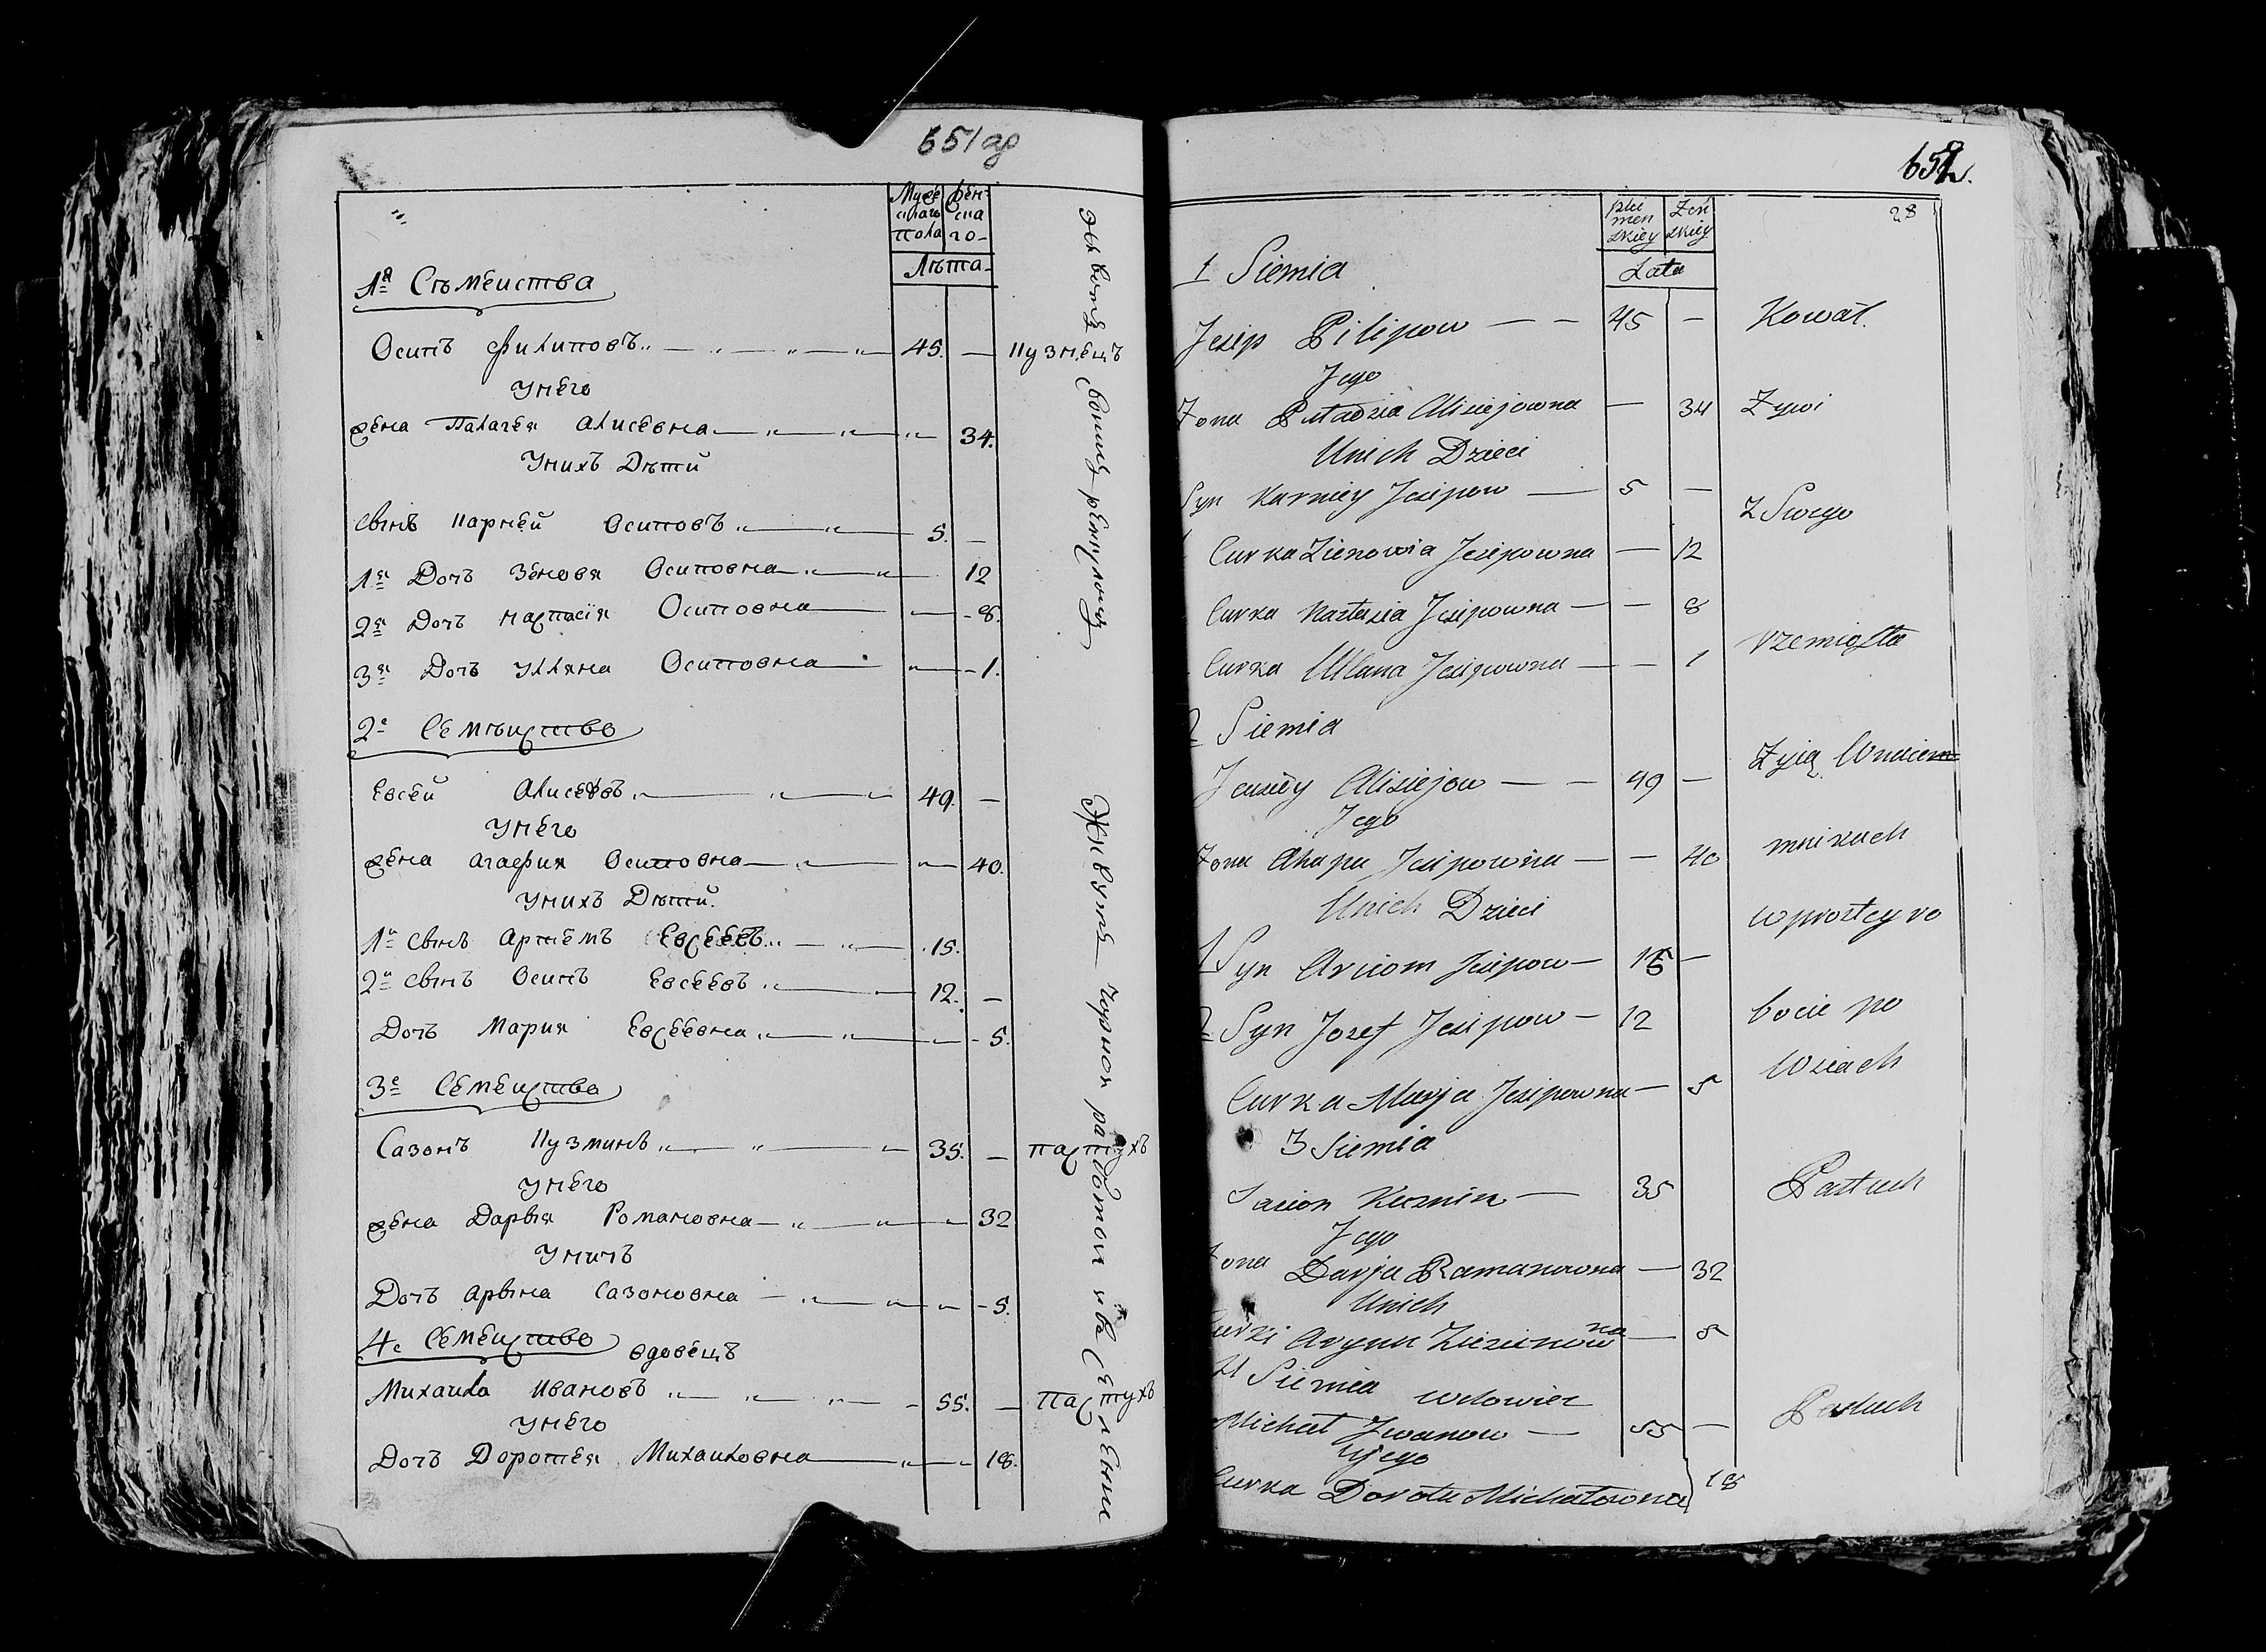 651 об
Муже
скаго
пола
жен-
ска
го-
Лѣта-
1я Съмеиства
Осипъ Филиповъ „ — „ — „ — „ — 45. — Кузнецъ
Унего
жена Палагея Алисевна — „ — „ — 34.
Унихъ Дѣтй
свінъ Карней Осиповъ „ — „ — 5. —
1я Дочъ Зеновя Осиповна „ — „ — 12
2я Дочъ настасія Осиповна — „ — 8.
3я Дочъ Уляна Осиповна — „ — 1.
2е Семъиство
Евсей Алисеовъ „ — „ — „ — 49. —
Унего
жена агафия Осиповна — „ — „ — 40.
Унихъ Дѣтй.
1й Свінъ Артемъ Евсеевъ „ — „ — 15.
2й Свінъ Осипъ Евсеевъ „ — 12. —
Дочъ Мария Евсеевна „ — „ — 5.
3е Семеиства
Сазонъ Кузминъ „ — „ — „ 35. — пастухъ
Унего
жена Дарвія Романовна — „ — „ — 32
Унихъ
Дочъ арвіна Сазоновна — „ — „ — 5.
4е Семеиство вдовецъ
Михаила Ивановъ „ — „ — „ — 55. — Пастухъ
Унего
Дочъ Доротея Михаиловна — „ — 18.
своимъ
Живутъ чорной работой
652.
28
płci
men
zkiey
Zeń
zkiey
Lata
1 Siemia
Jesip Pilipow — — 45 — Kowal.
Jego
Zona Alisiejowna — 34 Zywi
Unich Dzieci
Syn Karniey Jesipow — 5 —
z Swego
Curka Zienowia Jesipowna — 12
Curka Nastasia Jesipowna — — 8
Curka Ulana Jesipowna — — 1
rzemiosła
2 Siemia
Żyią
Jeusiey Alisiejow — — 49 —
Jego
Zona Ahapa Jesipowna — — 40
mnikach
Unich Dzieci
w prostey ro
1 Syn Arciom Jesipow — 15 —
2 Syn Jozef Jesipow — 12
bocie po
Wsiach
Curka Marja Jesipowna — 5
3 Siemia
Sacion Kuzmin — 35 Pastuch
Jego
Zona Darja Ramanowna — 32
Unich
Curki Aryna na — 5
4 Siemia Wdowiec
Michał Iwanow — 55 — Pastuch
Ujego
Curka Dorota Michałowna 18